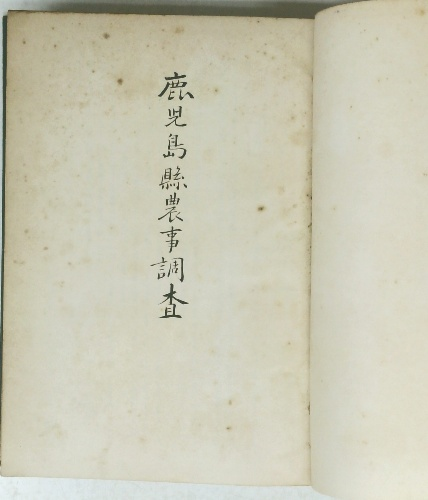 鹿児島縣農事調査